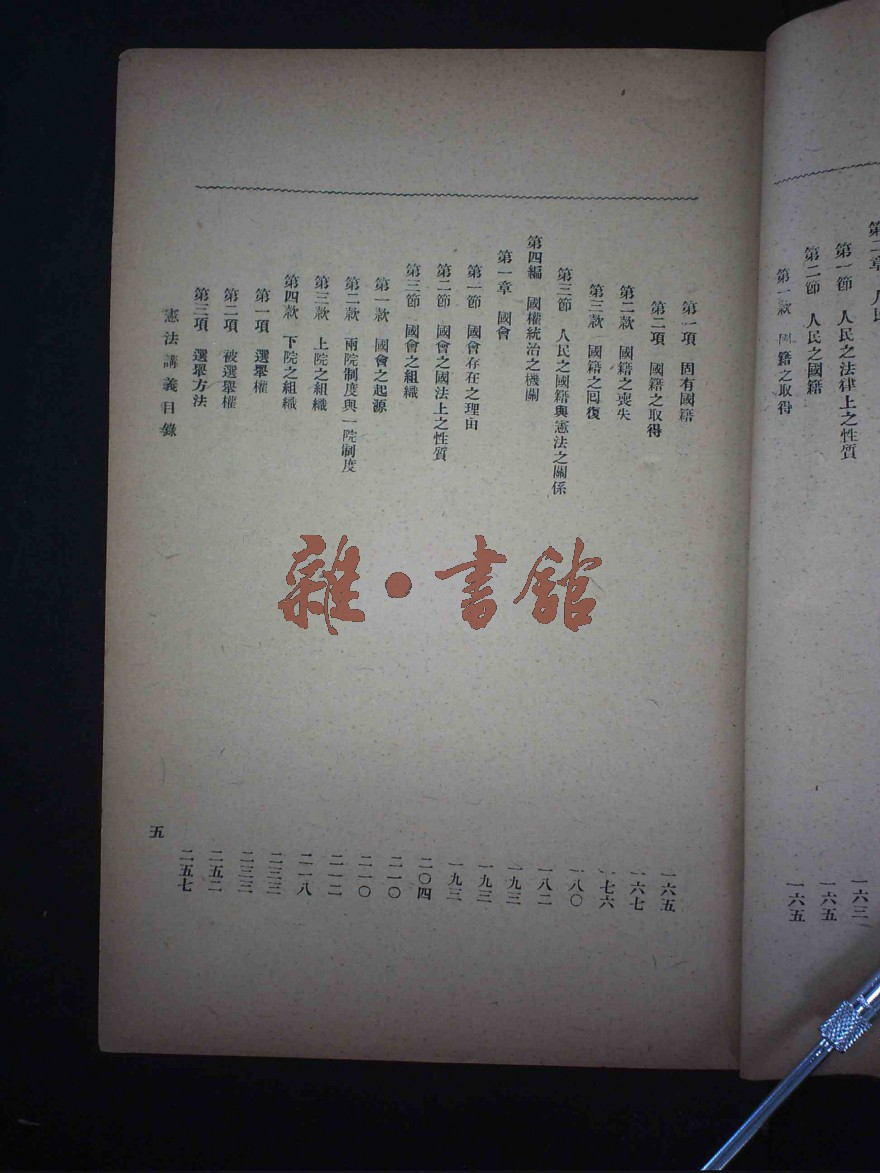 第二章 人民
第一節 人民之法律上之性質 一六三
第二節 人民之國籍 一六五
第一款 國籍之取得 一六五
第一項 固有國籍 一六五
第二項 國籍之取得 一六七
第二款 國籍之喪失 一七六
第三款 國籍之回復 一八〇
第三節 人民之國籍與憲法之關係 一八二
第四編 國權統治之機關 一九三
第一章 國會 一九三
第一節 國會存在之理由 一九三
第二節 國會之國法上之性質 二〇四
第三節 國會之組織 二一〇
第一款 國會之起源 二一〇
第二款 兩院制度與一院制度 二一二
第三款 上院之組織 二一八
第四款 下院之組織 二三三
第一項 選舉權 二三三
第二項 被選舉權 二五二
第三項 選舉方法 二五七
憲法講義目錄 五
雜·書館